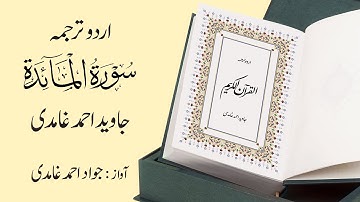 اردو ترجمہ
سُوْرَةُ الْمَائِدَة
جاوید احمد غامدی
آواز : جواد احمد غامدی
اردو ترجمہ
القرآن الکریم
جاوید احمد غامدی